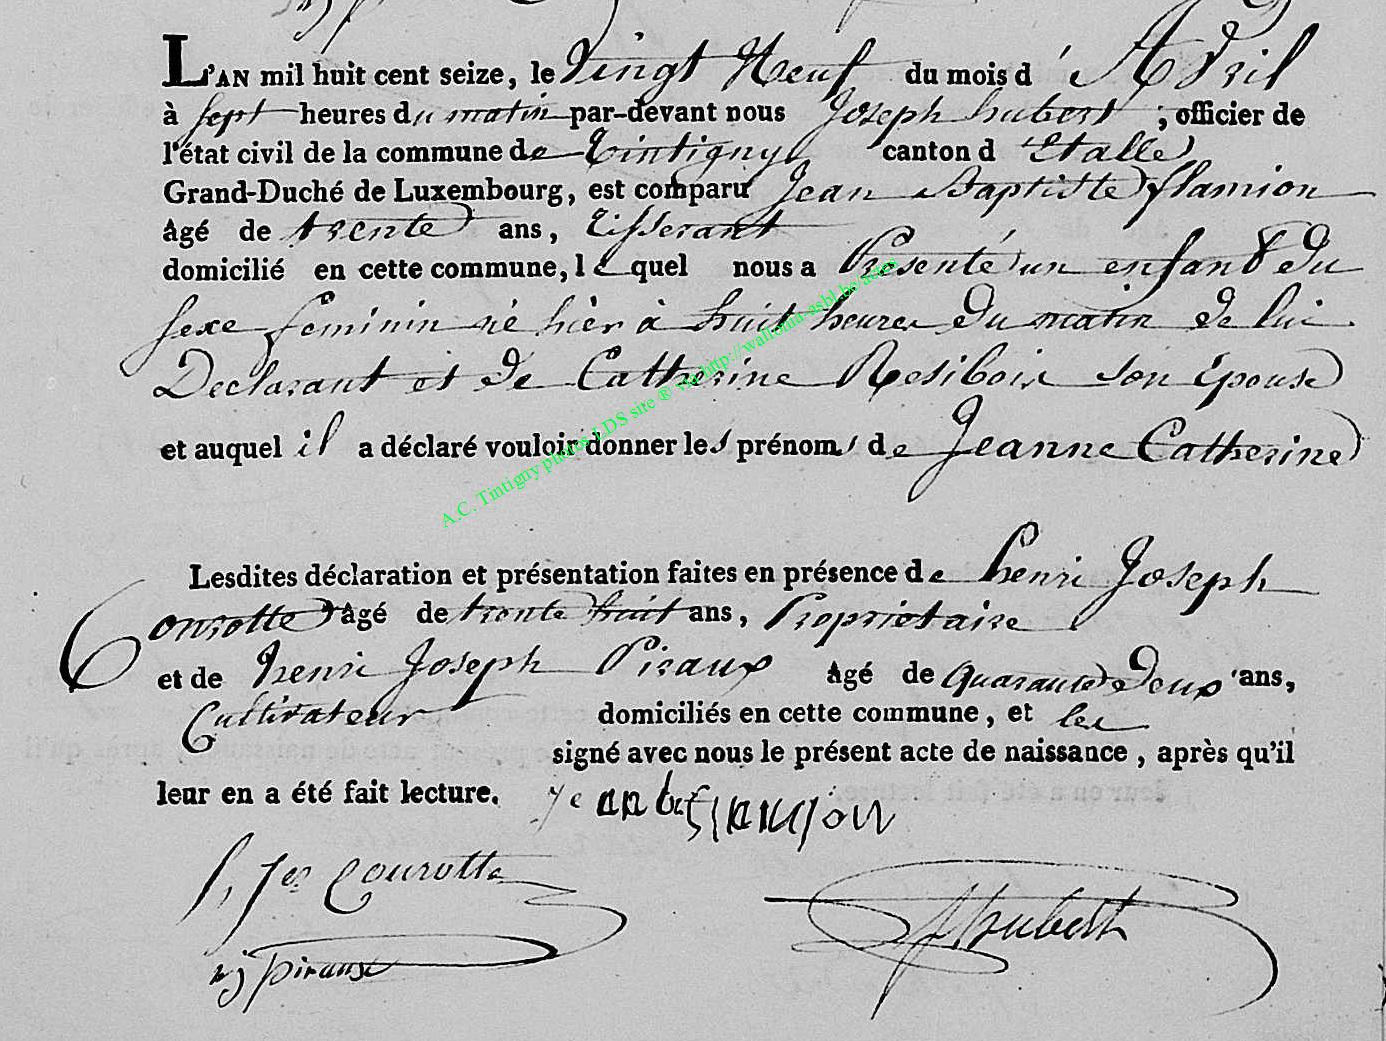 L'AN mil huit cent seize, le Vingt Neuf du mois d'Avril
à sept heures du matin par-devant nous Joseph hubert ; officier de
l'état civil de la commune de Tintigny canton d'Etalle
Grand-Duché de Luxembourg, est comparu Jean Baptiste flamion
âgé de trente ans, tisserant
domicilié en cette commune, le quel nous a Presenté un enfant du
sexe feminin né hier à huit heures du matin de lui
Declarant et de Catherine Resibois son épouse
et auquel il a déclaré vouloir donner les prénoms de Jeanne Catherine
A.C. Tintigny photos LDS site ® via http://wallonia-asbl.be/actes
Lesdites déclaration et présentation faites en présence de henri Joseph
Conrotte âgé de trente huit ans, Propriétaire
et de henri Joseph Piraux âgé de quarante deux ans,
Cultivateur domiciliés en cette commune, et les
signé avec nous le présent acte de naissance, après qu'il
leur en a été fait lecture. jean flamion
h, Jos Conrotte
hubert
hj piraux